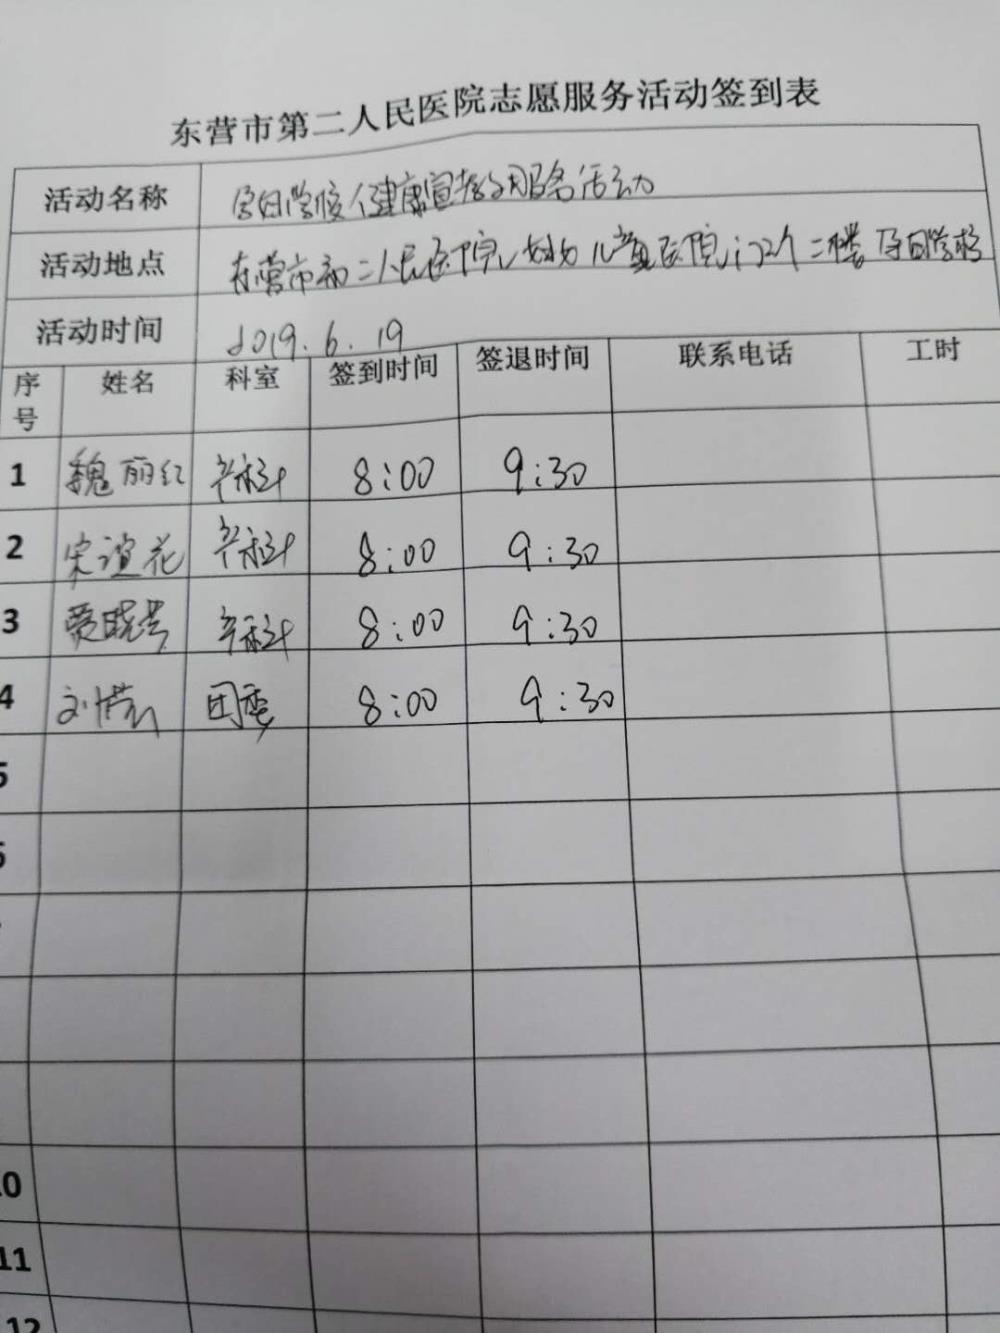 东营市第二人民医院志愿服务活动签到表
活动名称 孕妇学校健康宣教服务活动
活动地点 东营市第二人民医院妇女儿童医院门诊二楼孕妇学校
活动时间 2019.6.19
序号 姓名 科室 签到时间 签退时间 联系电话 工时
1 魏丽红 产科 8:00 9:30
2 宋谊花 产科 8:00 9:30
3 贾晓芸 产科 8:00 9:30
4 刘 团委 8:00 9:30
5
6
10
11
12